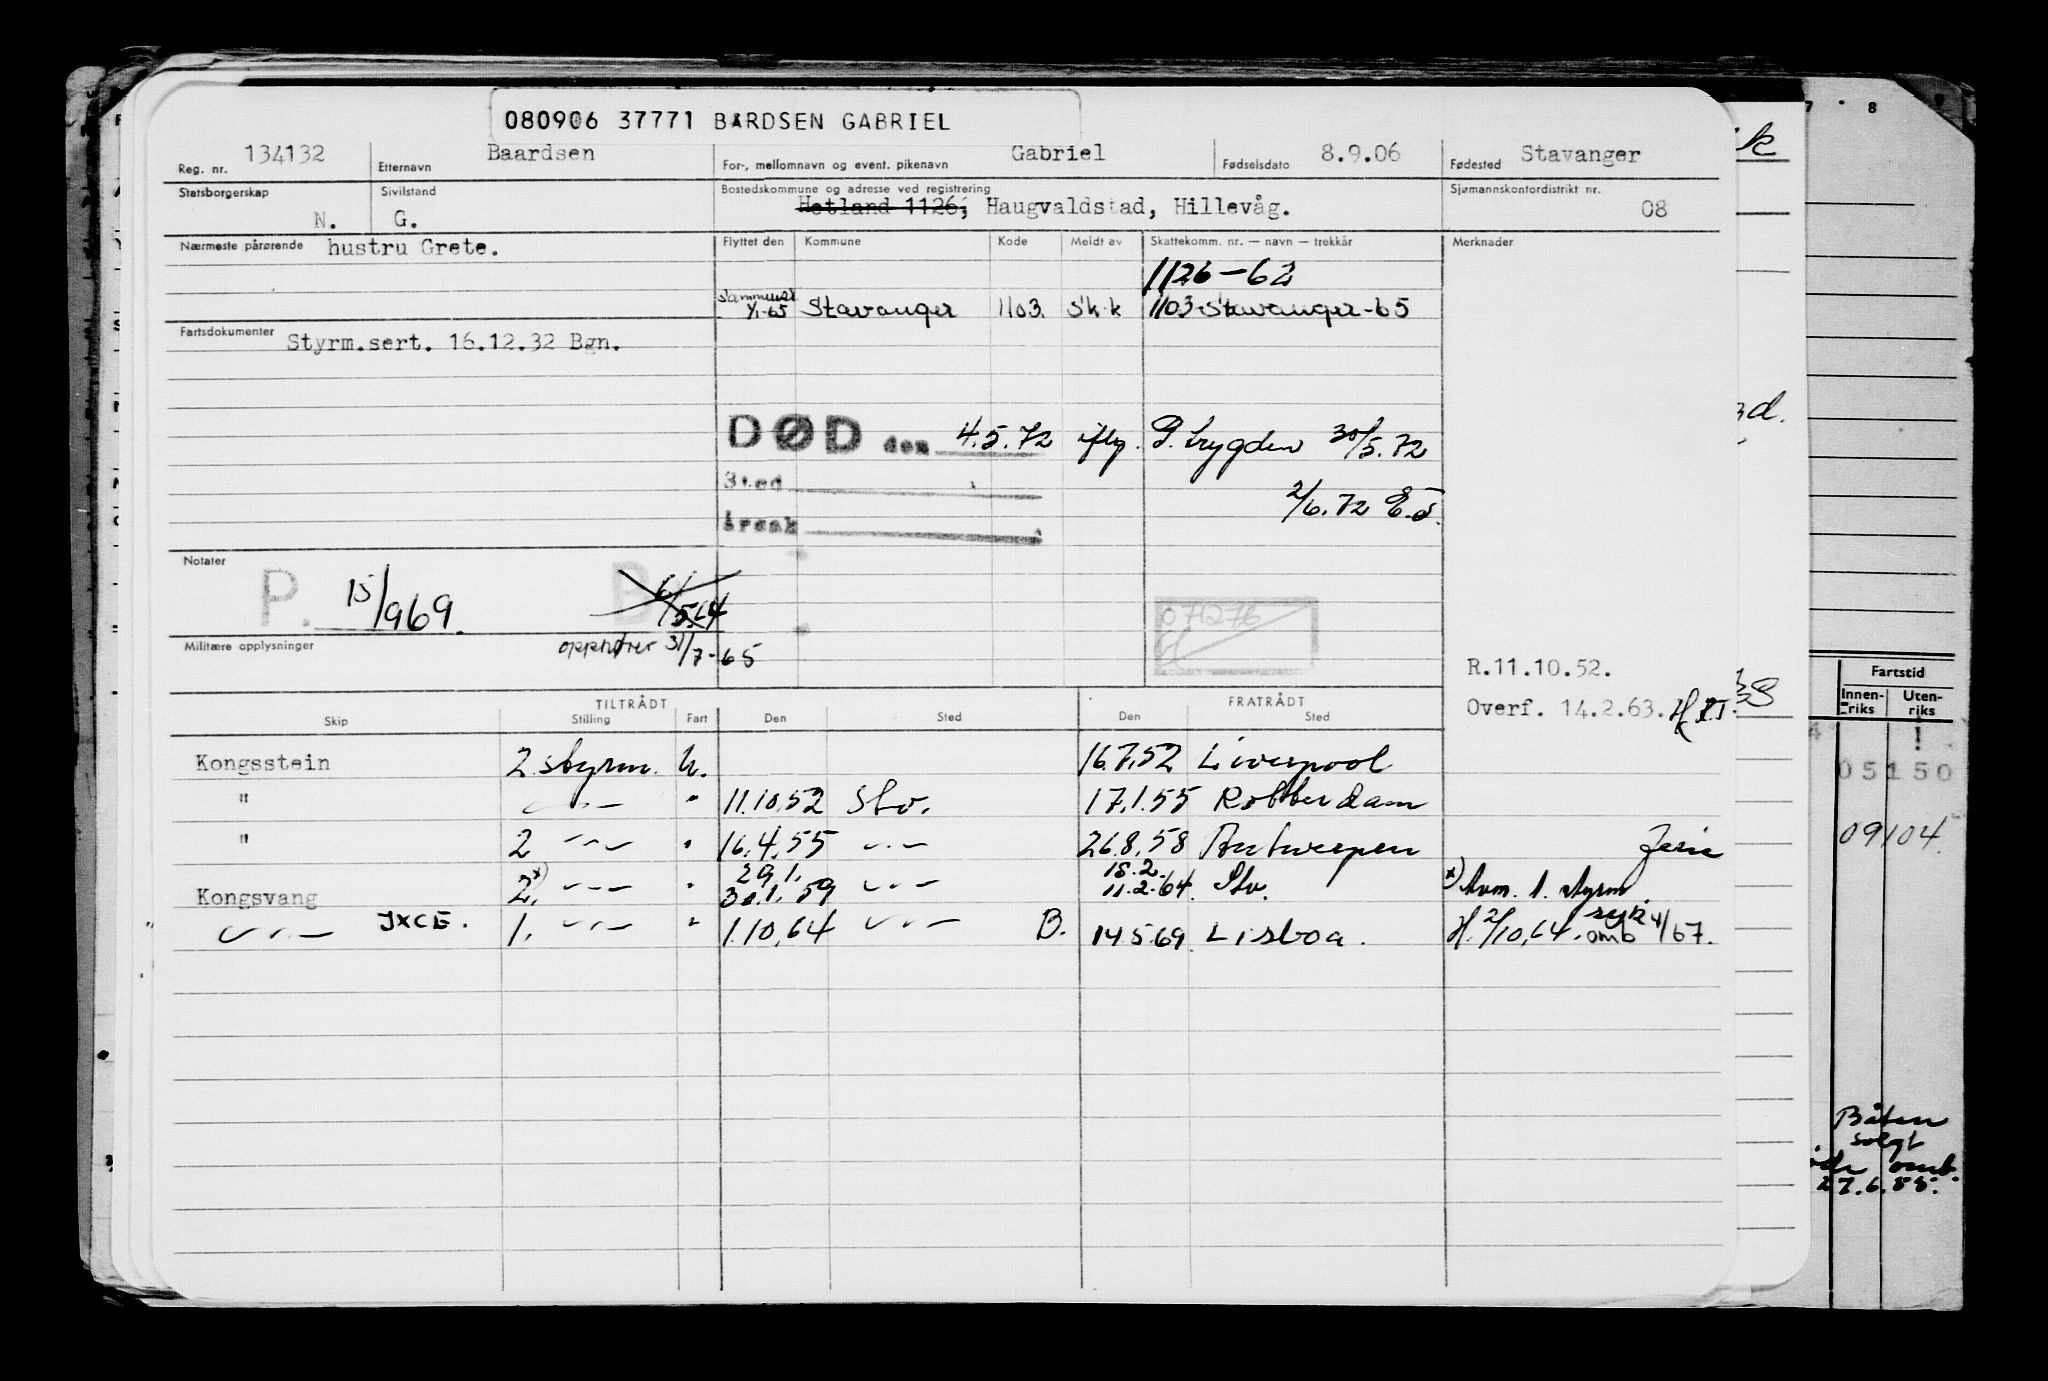 080906 37771 BARDSEN GABRIEL
Reg. nr. 134132 Etternavn Baardsen For-, mellomnavn og event. pikenavn Gabriel Fødselsdato 8.9.06 Fødested Stavanger
Statsborgerskap N. Sivilstand G. Bostedskommune og adresse ved registrering Hetland 1126, Haugvaldstad, Hillevåg. Sjømannskontordistrikt nr. 08
Nærmeste pårørende hustru Grete. Flyttet den Kommune Kode Meldt av Skattekomm. nr. — navn — trekkår Merknader
1126-62
Sammensl. 1/1-65 Stavanger 1103. Sk.k 1103-Stavanger-65
Fartsdokumenter Styrm.sert. 16.12.32 Bgn.
DØD den 4.5.72 iflg. P.trygden 30/5.72
Sted
2/6.72 E.S.
årsak
Notater
P. 15/969. B 6/5.64
071276
Militære opplysninger opphører 31/7-65
R.11.10.52.
Overf. 14.2.63.
TILTRÅDT FRATRÅDT
Skip Stilling Fart Den Sted Den Sted
Kongsstein 2 styrm. U. 16.7.52 Liverpool
" —"— " 11.10.52 Stv. 17.1.55 Rotterdam
" 2 —"— " 16.4.55 —"— 26.8.58 Antwerpen Ferie
29.1. 15.2.
Kongsvang 2.*) —"— " 30.1.59 —"— 11.2.64. Stv. *) 1. styrm.
—"— JXCE. 1. —"— " 1.10.64 —"— B. 14.5.69 Lisboa. H. 2/10.64. omb 4/67.
7 8
k
d.
Fartstid
Innen-riks Uten-riks
05150
09104
Båten
solgt
omb.
27.6.88.